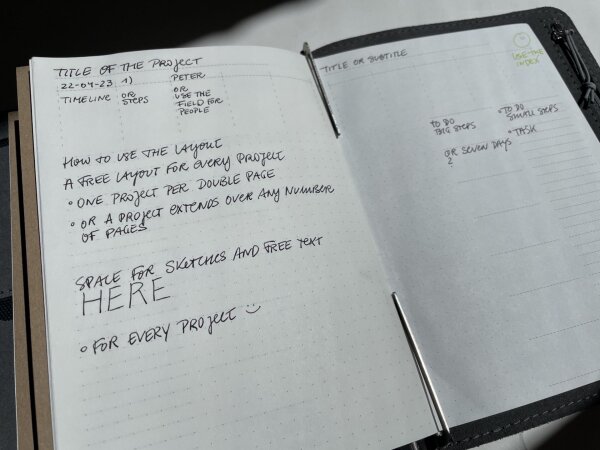 TITLE OF THE PROJECT
22-04-23 1) PETER
TIMELINE OR STEPS OR USE THE FIELD FOR PEOPLE
HOW TO USE THE LAYOUT
A FREE LAYOUT FOR EVERY PROJECT
• ONE PROJECT PER DOUBLE PAGE
• OR A PROJECT EXTENDS OVER ANY NUMBER
OF PAGES
SPACE FOR SKETCHES AND FREE TEXT
HERE
• FOR EVERY PROJECT :)
TITLE OR SUBTITLE
USE THE
INDEX
TO DO
BIG STEPS
• TO DO
SMALL STEPS
• TASK
OR SEVEN DAYS